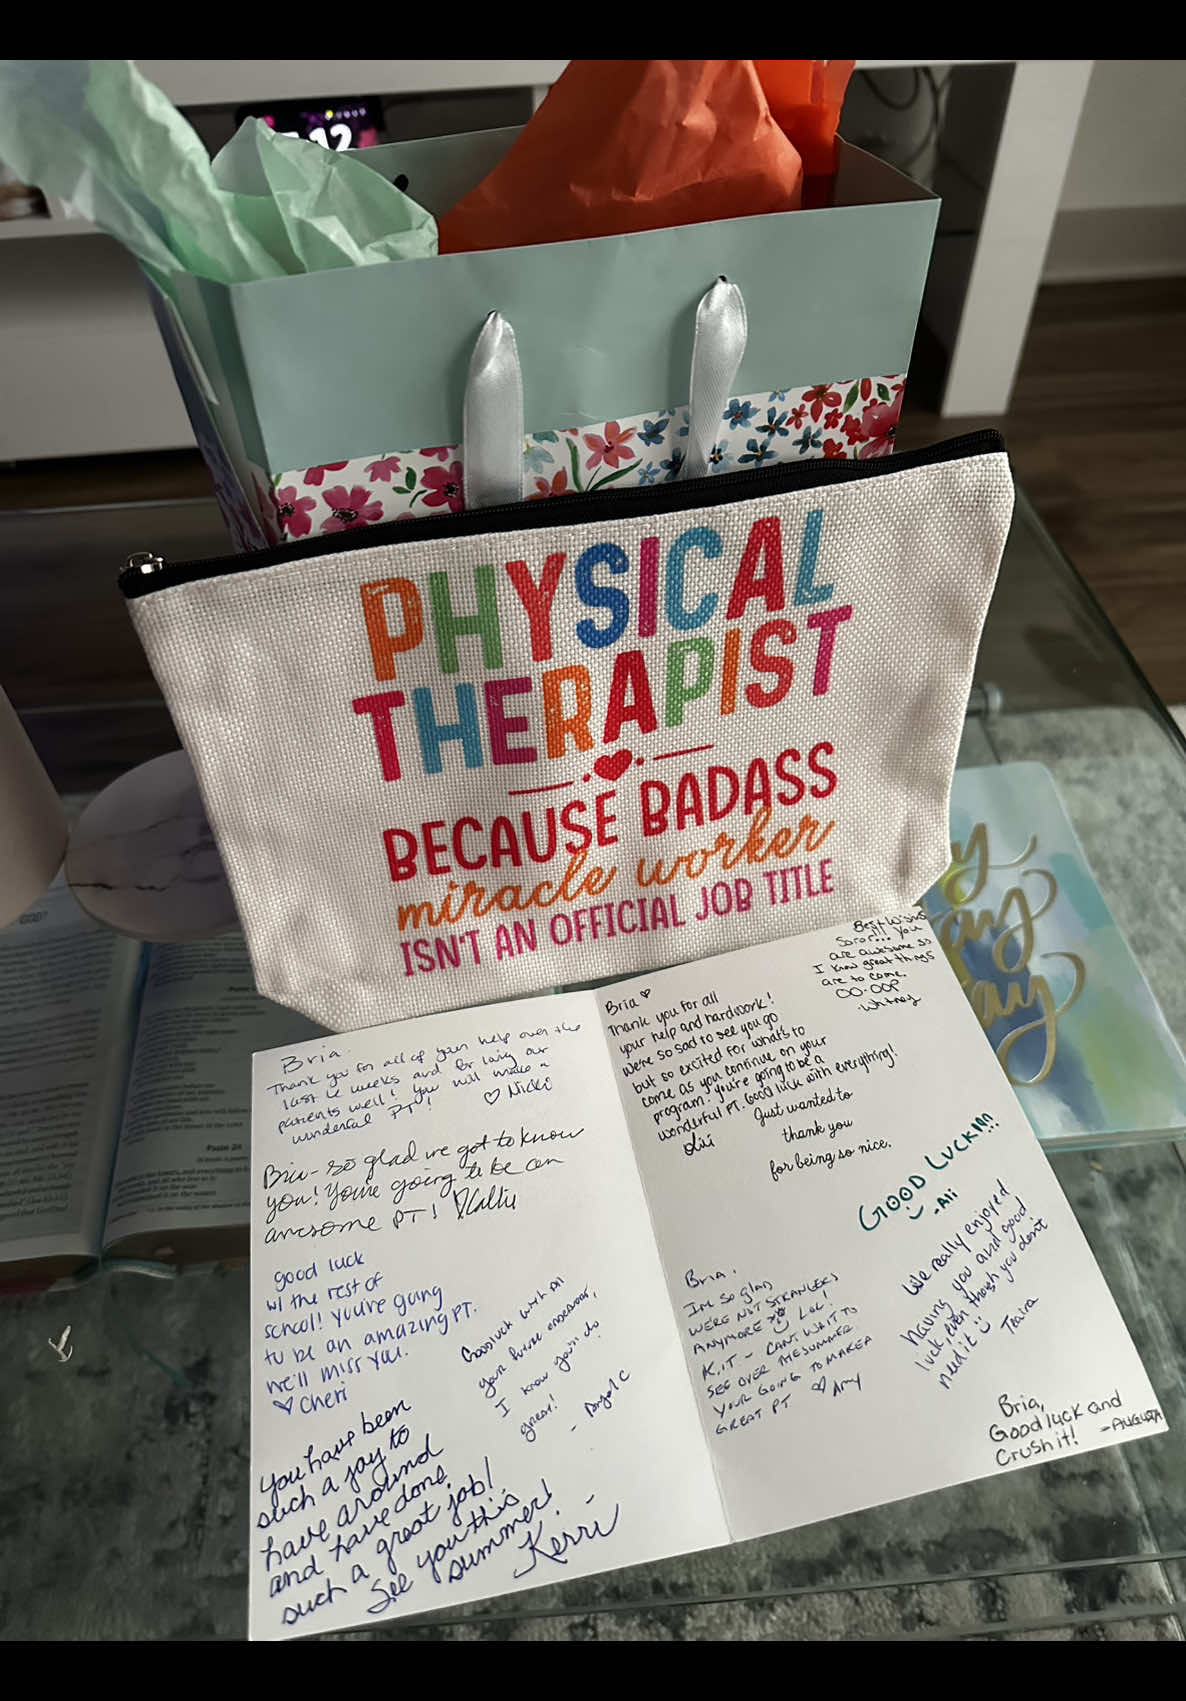 12
PHYSICAL
THERAPIST
BECAUSE BADASS
miracle worker
ISN'T AN OFFICIAL JOB TITLE
GOD?
Psalm 24
Bria.
Thank you for all of your help over the
last 4 weeks and for loving our
patients well! You will make a
wonderful PT!
♡ Nicki
Bria- so glad we got to know
you! You're going to be an
awesome PT! ♡Callie
good luck
w/ the rest of
school! you're going
to be an amazing PT.
we'll miss you.
♡ Cheri
Goodluck with all
your future endeavor,
I know you'll do
great!
- Angel C
you have been
such a joy to
have around
and have done
such a great job!
See you this
summer!
Kerri
Best Wishes
Soror!!! You
are awesome so
I know great things
are to come.
OO-OOP
-Whitney
Bria ♡
Thank you for all
your help and hardwork!
We're so sad to see you go
but so excited for what's to
come as you continue on your
program. you're going to be a
wonderful PT. Good luck with everything!
Livi
Just wanted to
thank you
for being so nice.
GOOD LUCK!!!
-Ali
We really enjoyed
having you and good
luck, even though you don't
need it
Teaira
Bria,
Im so glad
WERE NOT STRANGERS
ANYMORE LOL!
K.I.T - CANT WAIT TO
SEE OVER THE SUMMER.
YOUR GOING TO MAKE A
GREAT PT ♡ Amy
Bria,
Good luck and
Crush it! -AUGUSTA